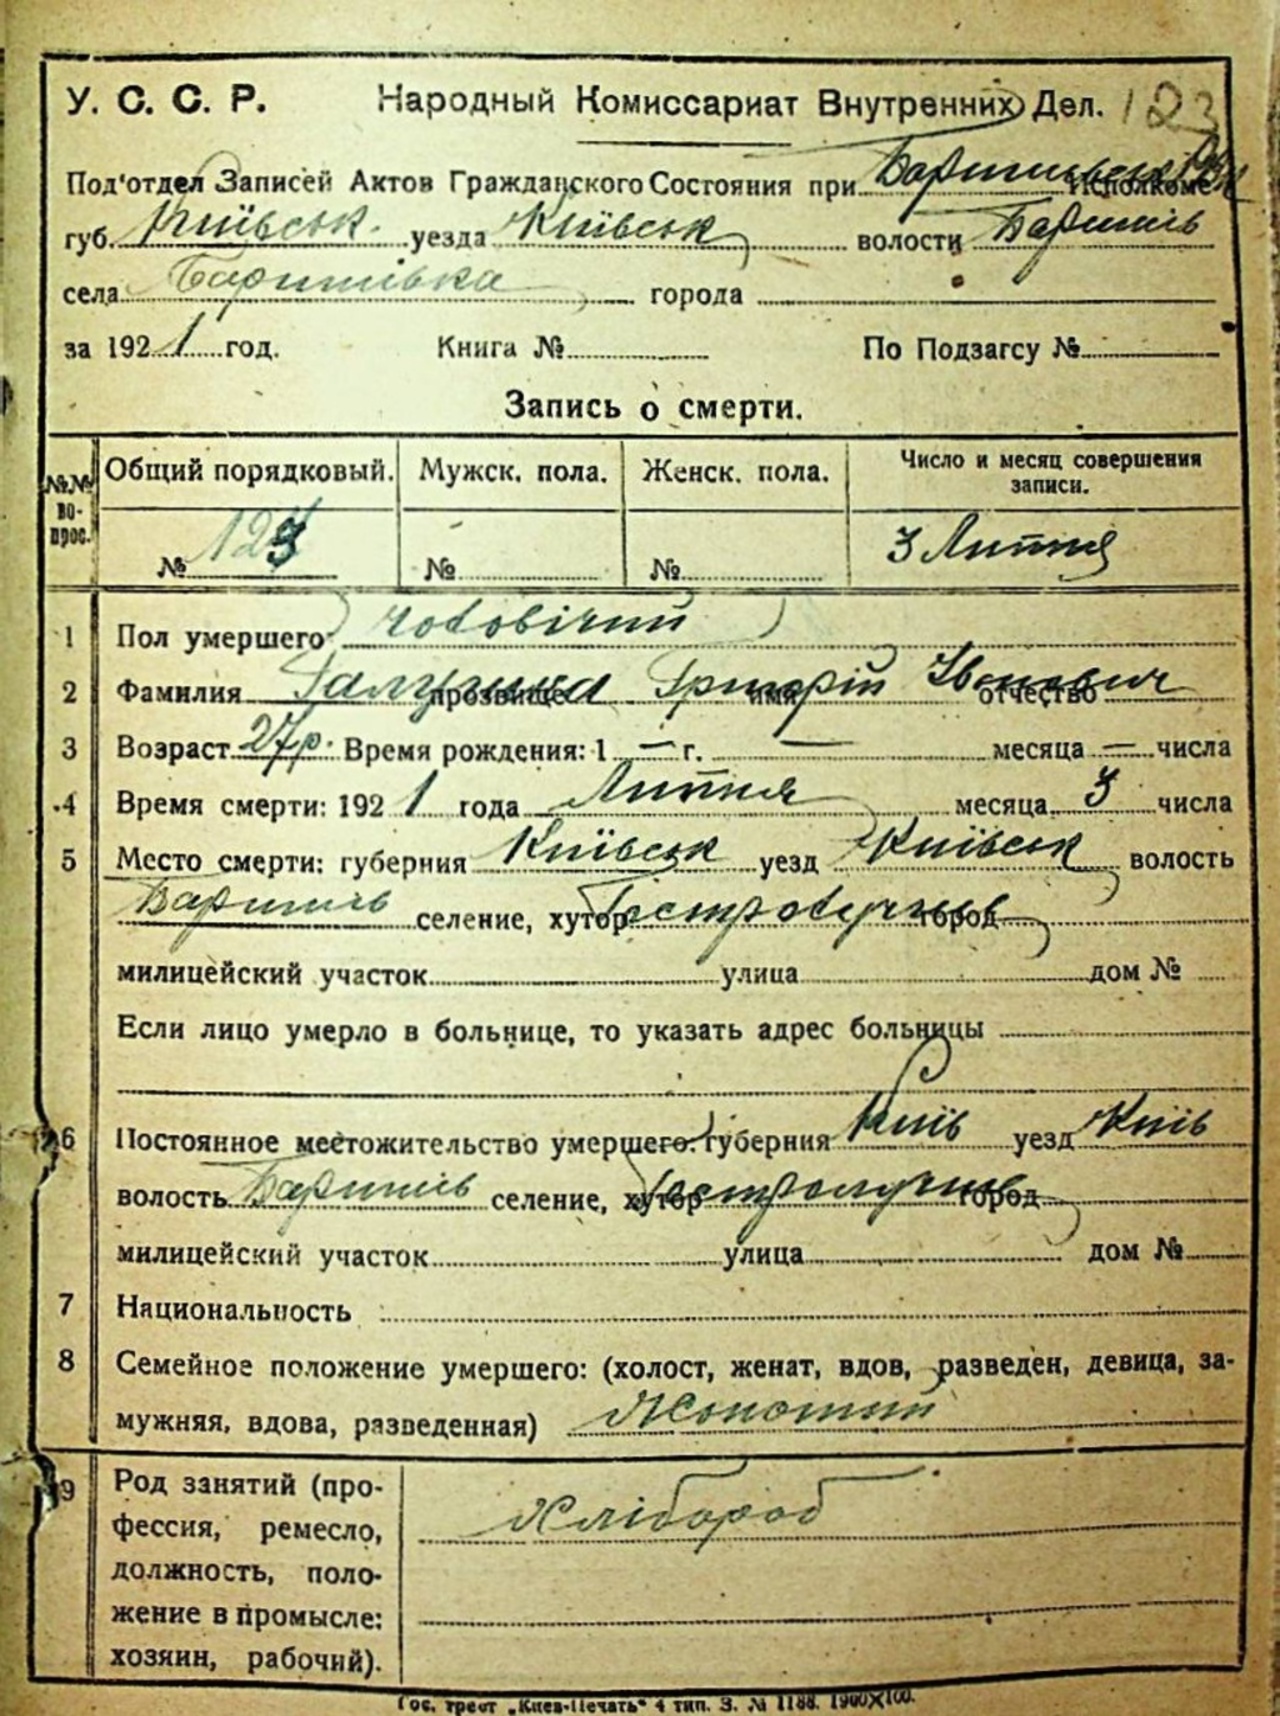 У. С. С. Р. Народный Комиссариат Внутренних Дел. 123
Под'отдел Записей Актов Гражданского Состояния при Исполкоме
губ. Київськ. уезда Київськ волости Баришів
села Баришівка города
за 1921 год. Книга № По Подзагсу №
Запись о смерти.
№№ вопрос. Общий порядковый. Мужск. пола. Женск. пола. Число и месяц совершения записи.
№ 123 № № 3 Липня
1 Пол умершего чоловічий
2 Фамилия прозвище Григорій имя Іванович отчество
3 Возраст 27 р. Время рождения: 1 — г. — месяца — числа
4 Время смерти: 1921 года Липня месяца 3 числа
5 Место смерти: губерния Київськ уезд Київськ волость
Баришів селение, хутор город
милицейский участок улица дом №
Если лицо умерло в больнице, то указать адрес больницы
6 Постоянное местожительство умершего: губерния Київ уезд Київ
волость Баришів селение, хутор город
милицейский участок улица дом №
7 Национальность
8 Семейное положение умершего: (холост, женат, вдов, разведен, девица, за-
мужняя, вдова, разведенная) Жонотий
9 Род занятий (про-
фессия, ремесло, Хлібороб
должность, поло-
жение в промысле:
хозяин, рабочий).
Гос. трест „Киев-Печать“ 4 тип. З. № 1188. 1900Х100.